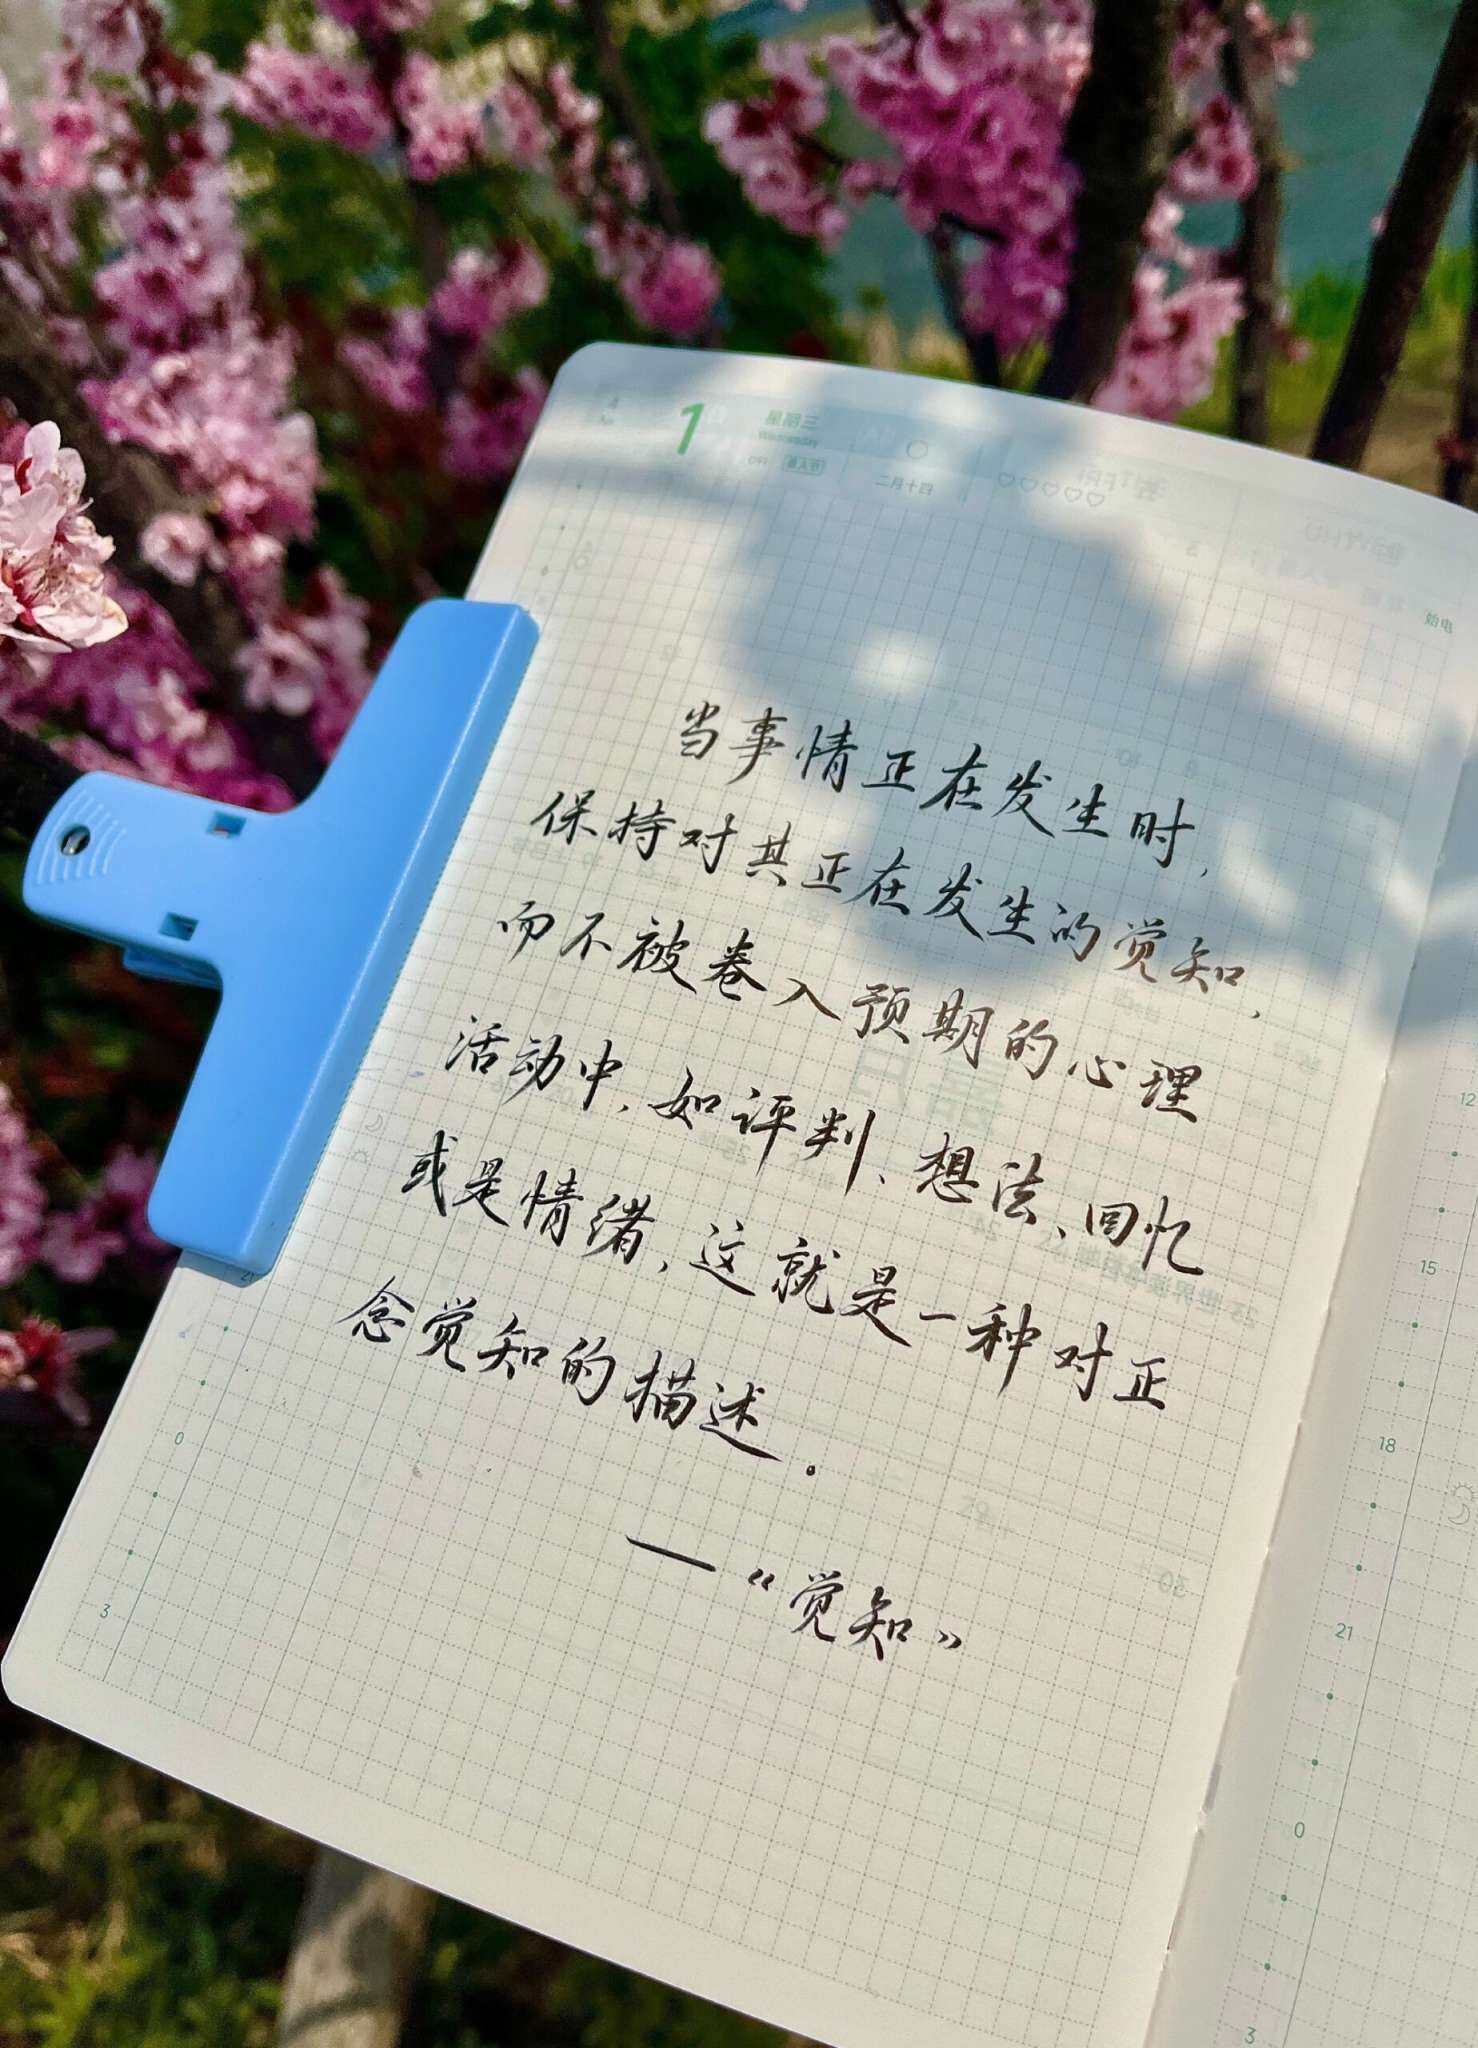 1 星期三 Wednesday
091 愚人节
二月十四
当事情正在发生时,
保持对其正在发生的觉知,
而不被卷入预期的心理
活动中,如评判、想法、回忆
或是情绪,这就是一种对正
念觉知的描述。
——《觉知》
21
0
3
12
15
18
21
0
3